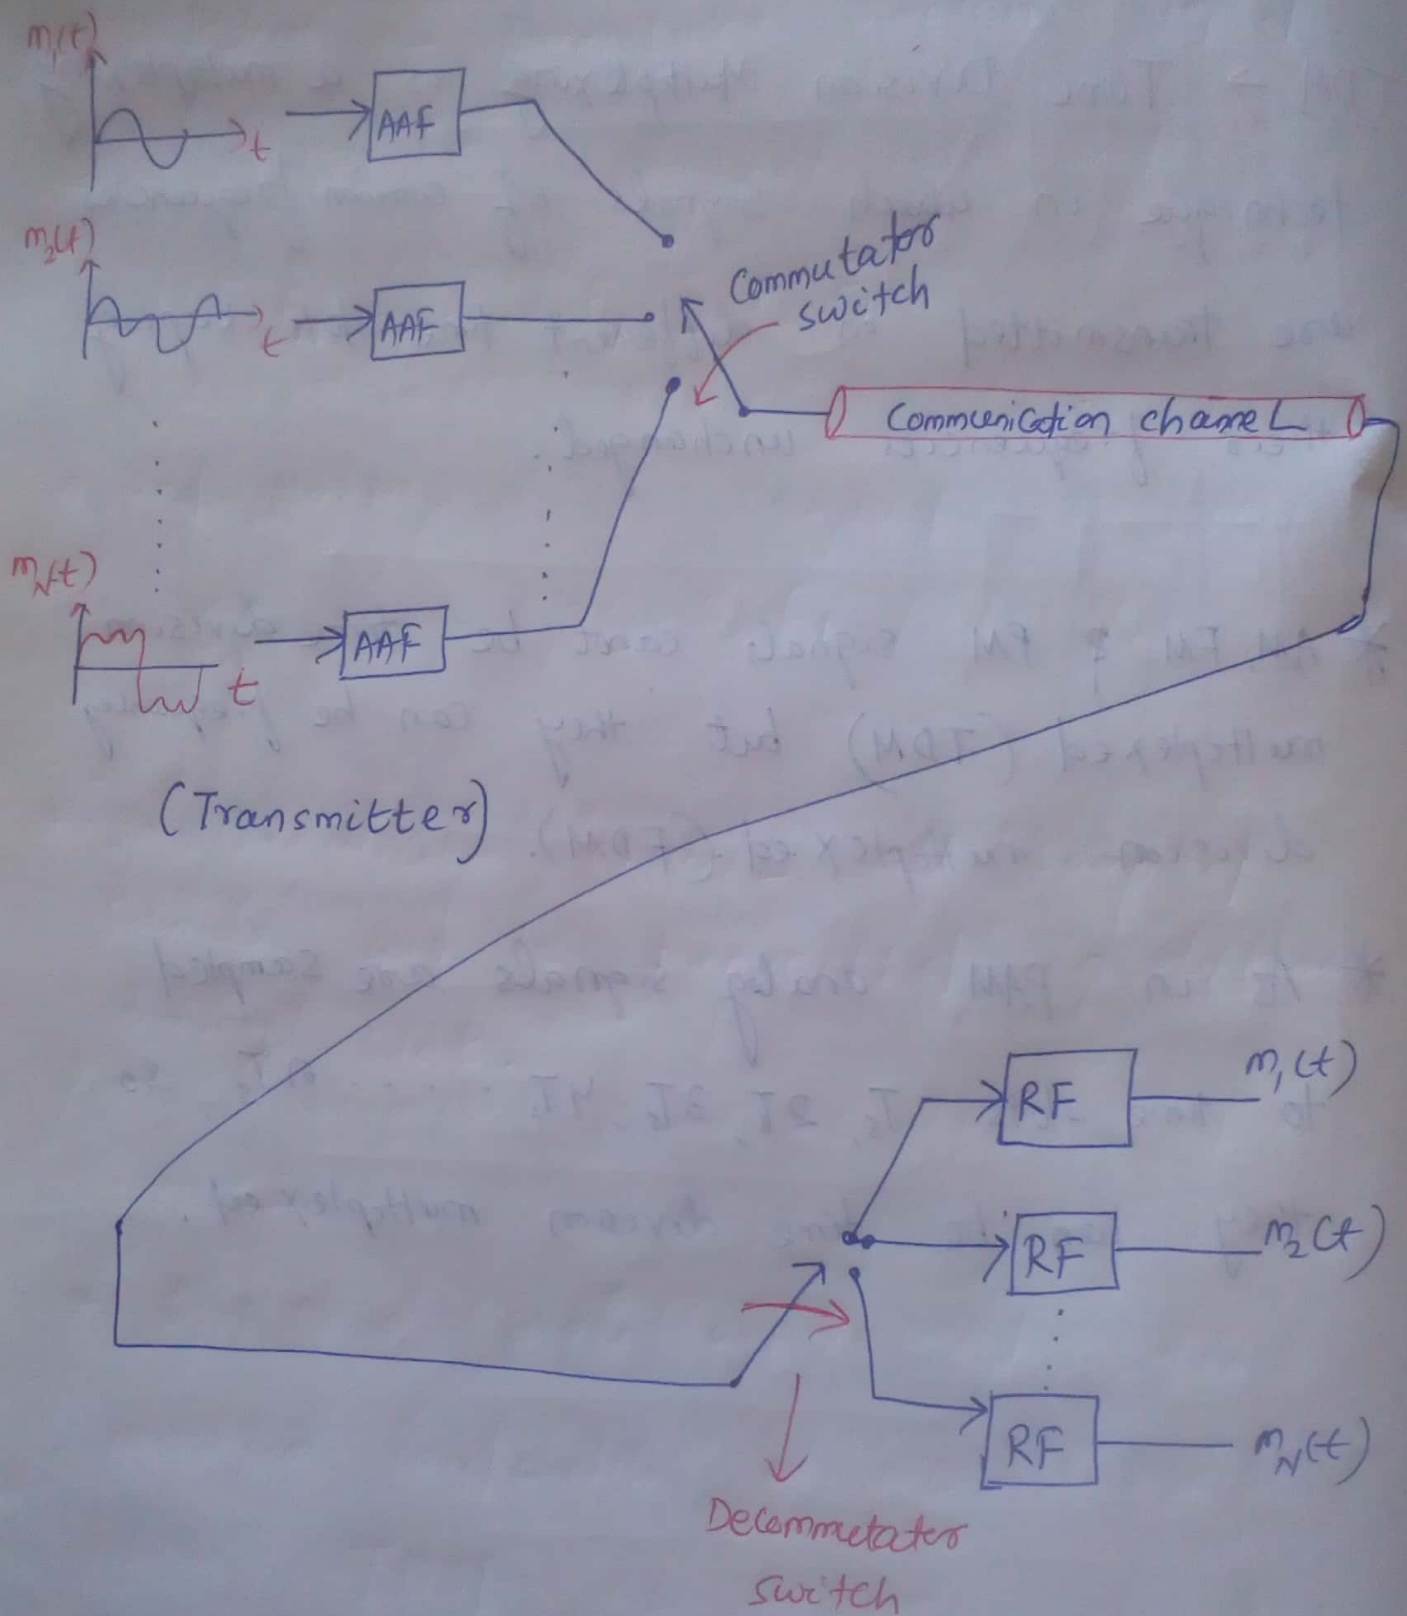 m₁(t)
t
AAF
m₂(t)
t
AAF
Commutator
switch
Communication channel
mN(t)
t
AAF
(Transmitter)
RF
m₁(t)
RF
m₂(t)
RF
mN(t)
Decommutator
switch